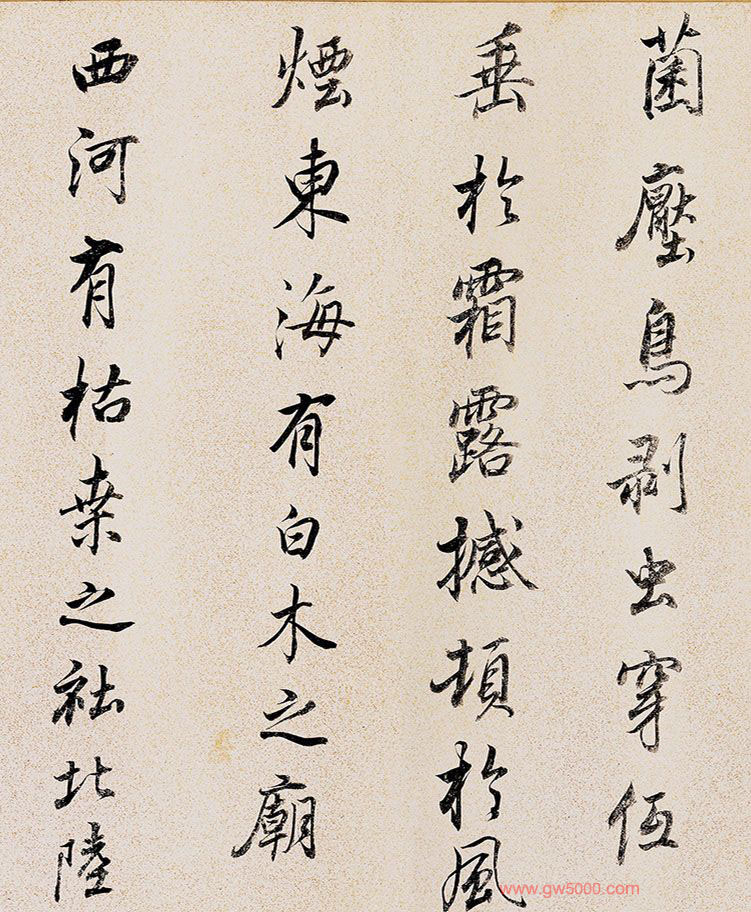 菌壓鳥剥虫穿伍
垂於霜露撼頓於風
煙東海有白木之廟
西河有枯桒之社北陸
www.gw5000.com